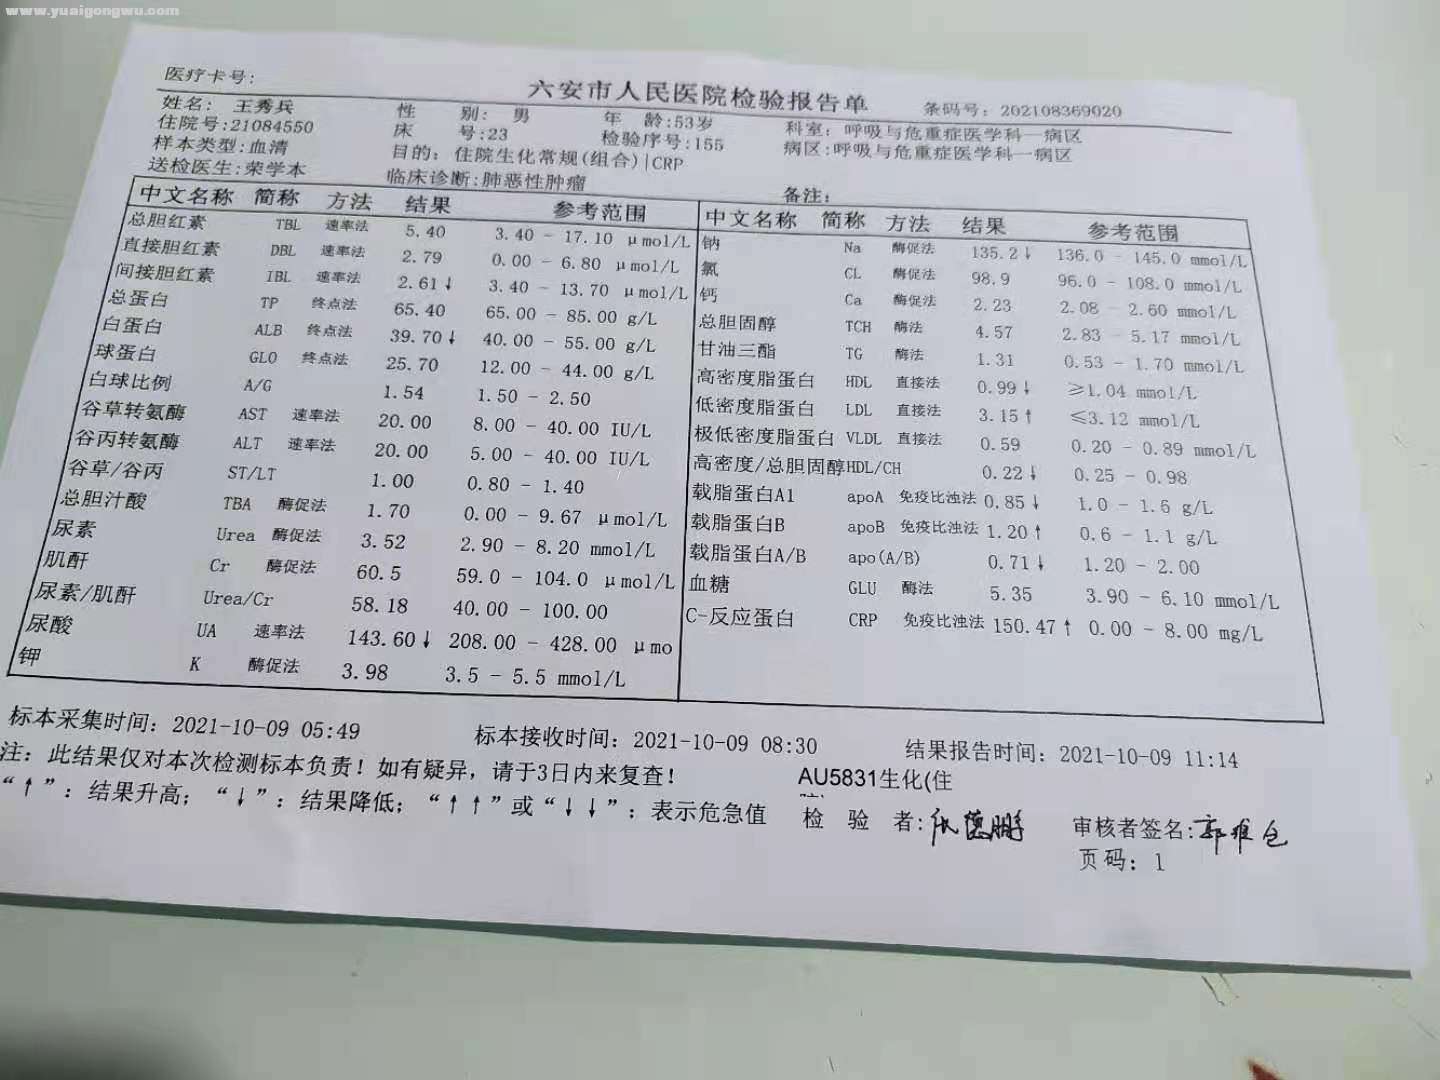 www.yuaigongwu.com
医疗卡号:
六安市人民医院检验报告单
条码号: 202108369020
姓名: 王秀兵 性 别: 男 年 龄:53岁 科室: 呼吸与危重症医学科一病区
住院号:21084550 床 号:23 检验序号:155 病区:呼吸与危重症医学科一病区
样本类型:血清 目的: 住院生化常规(组合)|CRP
送检医生:荣学本 临床诊断:肺恶性肿瘤 备注:
中文名称 简称 方法 结果 参考范围
总胆红素 TBL 速率法 5.40 3.40 - 17.10 μmol/L
直接胆红素 DBL 速率法 2.79 0.00 - 6.80 μmol/L
间接胆红素 IBL 速率法 2.61↓ 3.40 - 13.70 μmol/L
总蛋白 TP 终点法 65.40 65.00 - 85.00 g/L
白蛋白 ALB 终点法 39.70↓ 40.00 - 55.00 g/L
球蛋白 GLO 终点法 25.70 12.00 - 44.00 g/L
白球比例 A/G 1.54 1.50 - 2.50
谷草转氨酶 AST 速率法 20.00 8.00 - 40.00 IU/L
谷丙转氨酶 ALT 速率法 20.00 5.00 - 40.00 IU/L
谷草/谷丙 ST/LT 1.00 0.80 - 1.40
总胆汁酸 TBA 酶促法 1.70 0.00 - 9.67 μmol/L
尿素 Urea 酶促法 3.52 2.90 - 8.20 mmol/L
肌酐 Cr 酶促法 60.5 59.0 - 104.0 μmol/L
尿素/肌酐 Urea/Cr 58.18 40.00 - 100.00
尿酸 UA 速率法 143.60↓ 208.00 - 428.00 μmo
钾 K 酶促法 3.98 3.5 - 5.5 mmol/L
中文名称 简称 方法 结果 参考范围
钠 Na 酶促法 135.2↓ 136.0 - 145.0 mmol/L
氯 CL 酶促法 98.9 96.0 - 108.0 mmol/L
钙 Ca 酶促法 2.23 2.08 - 2.60 mmol/L
总胆固醇 TCH 酶法 4.57 2.83 - 5.17 mmol/L
甘油三酯 TG 酶法 1.31 0.53 - 1.70 mmol/L
高密度脂蛋白 HDL 直接法 0.99↓ ≥1.04 mmol/L
低密度脂蛋白 LDL 直接法 3.15↑ ≤3.12 mmol/L
极低密度脂蛋白 VLDL 直接法 0.59 0.20 - 0.89 mmol/L
高密度/总胆固醇HDL/CH 0.22↓ 0.25 - 0.98
载脂蛋白A1 apoA 免疫比浊法 0.85↓ 1.0 - 1.6 g/L
载脂蛋白B apoB 免疫比浊法 1.20↑ 0.6 - 1.1 g/L
载脂蛋白A/B apo(A/B) 0.71↓ 1.20 - 2.00
血糖 GLU 酶法 5.35 3.90 - 6.10 mmol/L
C-反应蛋白 CRP 免疫比浊法 150.47↑ 0.00 - 8.00 mg/L
标本采集时间: 2021-10-09 05:49 标本接收时间: 2021-10-09 08:30 结果报告时间: 2021-10-09 11:14
注: 此结果仅对本次检测标本负责! 如有疑异, 请于3日内来复查!
AU5831生化(住
“↑”: 结果升高; “↓”: 结果降低; “↑↑”或“↓↓”: 表示危急值
检 验 者: 审核者签名:
页码: 1